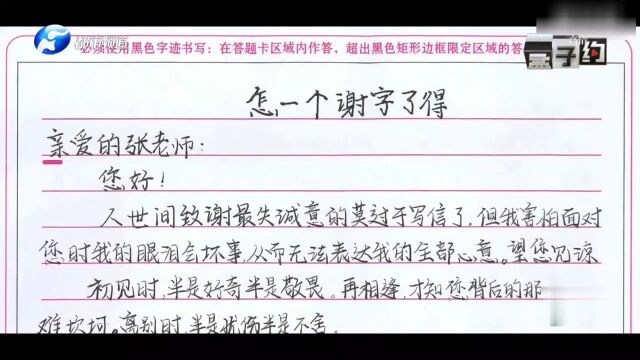 必须使用黑色字迹书写；在答题卡区域内作答，超出黑色矩形边框限定区域的答
怎一个谢字了得
亲爱的张老师：
您好！
人世间致谢最失诚意的莫过于写信了，但我害怕面对
您时我的眼泪会坏事，从而无法表达我的全部心意。望您见谅
初见时，半是好奇半是敬畏。再相逢，才知您背后的那
难坎坷。离别时，半是忧伤半是不舍。